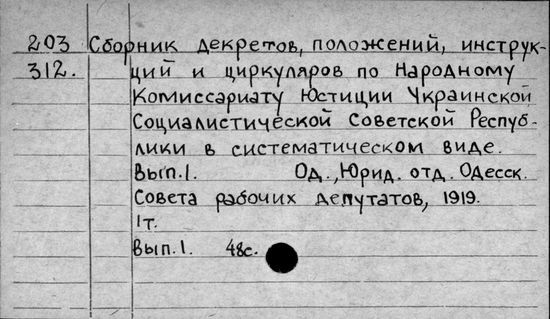 203 Сборник декретов, положений, инструк-
312. ций и циркуляров по Народному
Комиссариату Юстиции Украинской
Социалистической Советской Респуб-
лики в систематическом виде.
Вып.1. Од., Юрид. отд. Одесск.
Совета рабочих депутатов, 1919.
1т.
Вып.1. 48с.